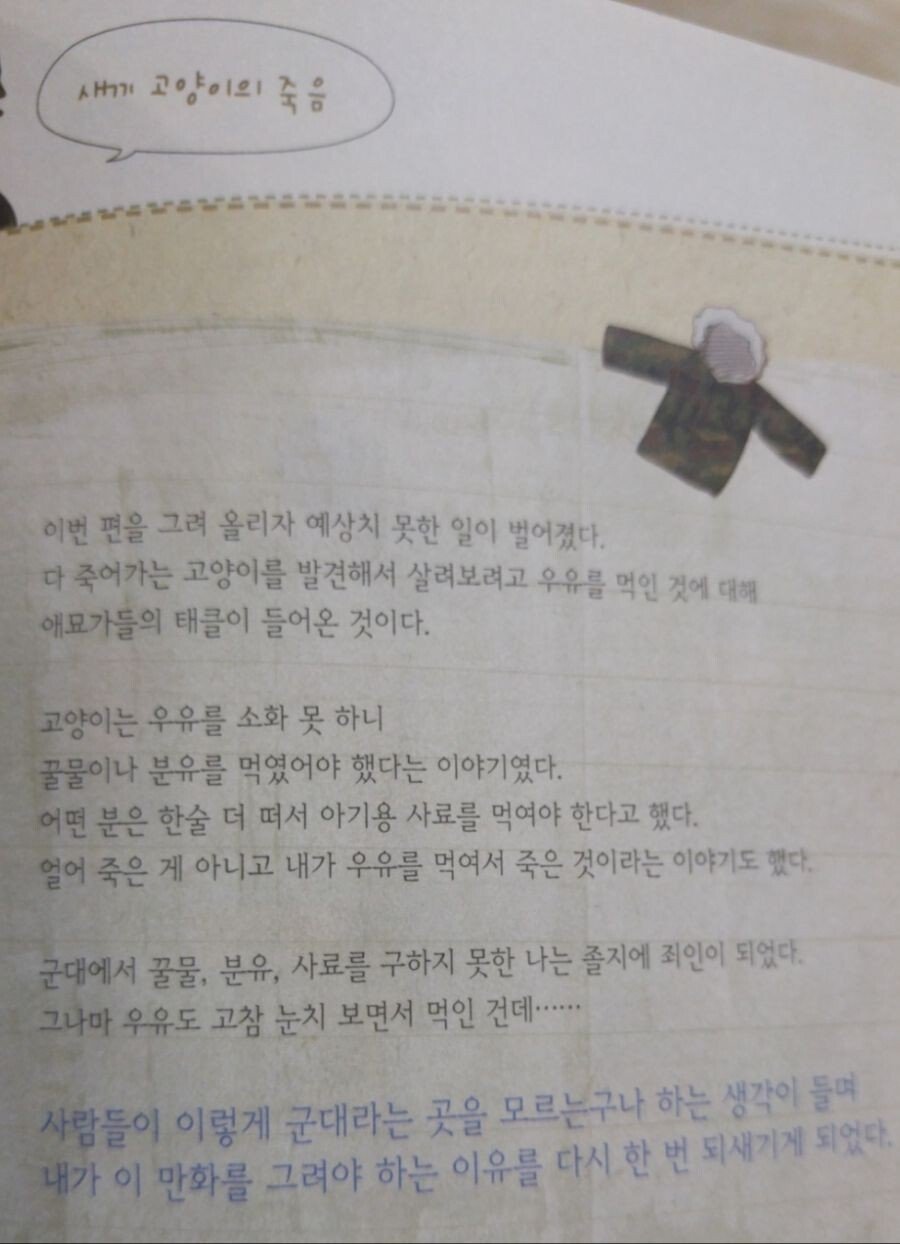 새끼 고양이의 죽음
이번 편을 그려 올리자 예상치 못한 일이 벌어졌다.
다 죽어가는 고양이를 발견해서 살려보려고 우유를 먹인 것에 대해
애묘가들의 태클이 들어온 것이다.
고양이는 우유를 소화 못 하니
꿀물이나 분유를 먹였어야 했다는 이야기였다.
어떤 분은 한술 더 떠서 아기용 사료를 먹여야 한다고 했다.
얼어 죽은 게 아니고 내가 우유를 먹여서 죽은 것이라는 이야기도 했다.
군대에서 꿀물, 분유, 사료를 구하지 못한 나는 졸지에 죄인이 되었다.
그나마 우유도 고참 눈치 보면서 먹인 건데……
사람들이 이렇게 군대라는 곳을 모르는구나 하는 생각이 들며
내가 이 만화를 그려야 하는 이유를 다시 한 번 되새기게 되었다.